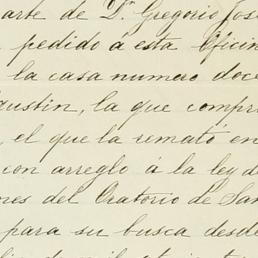 arte de Dn Gregorio José
pedido á esta Oficin
la casa numero doce
gustin, la que compr
, el que la remató en
con arreglo á la ley d
ores del Oratorio de San
para su busca desde